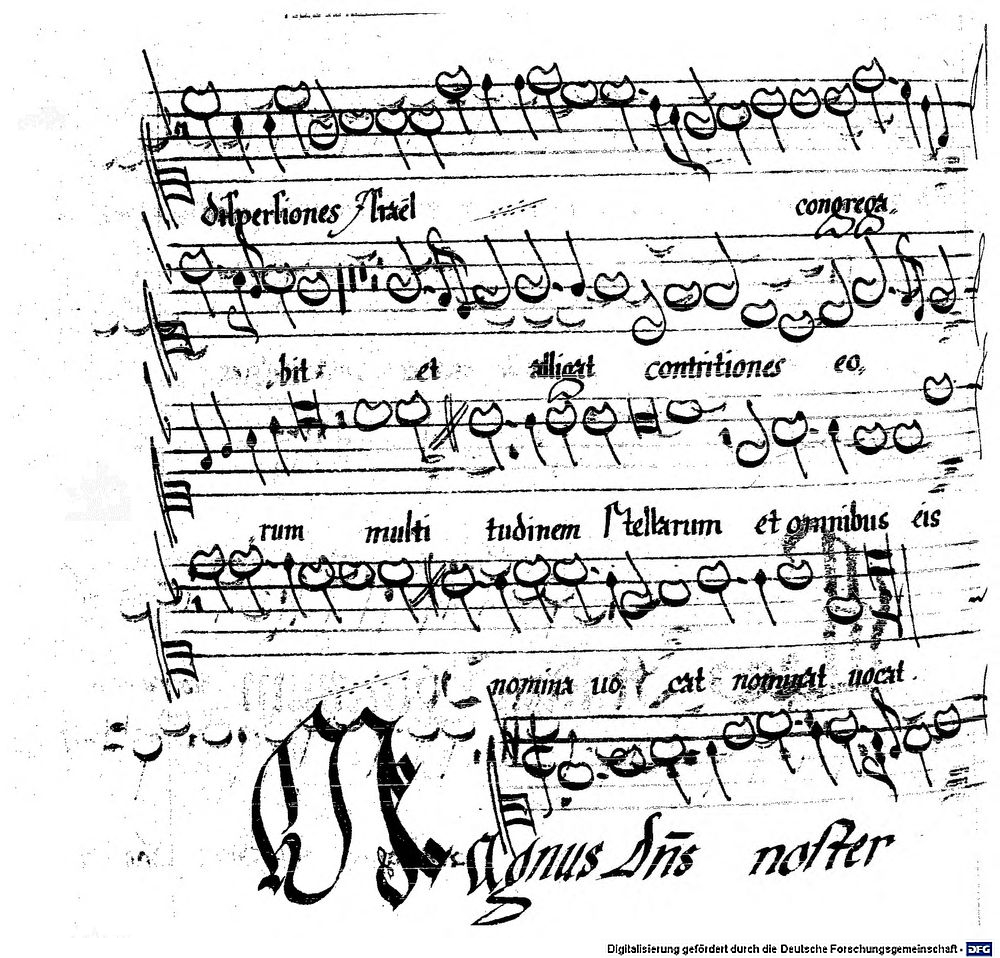 dispersiones Israel congrega
bit et alligat contritiones eo
rum multi tudinem stellarum et omnibus eis
nomina uo cat nominat uocat.
Magnus Dns noster
Digitalisierung gefördert durch die Deutsche Forschungsgemeinschaft - DFG